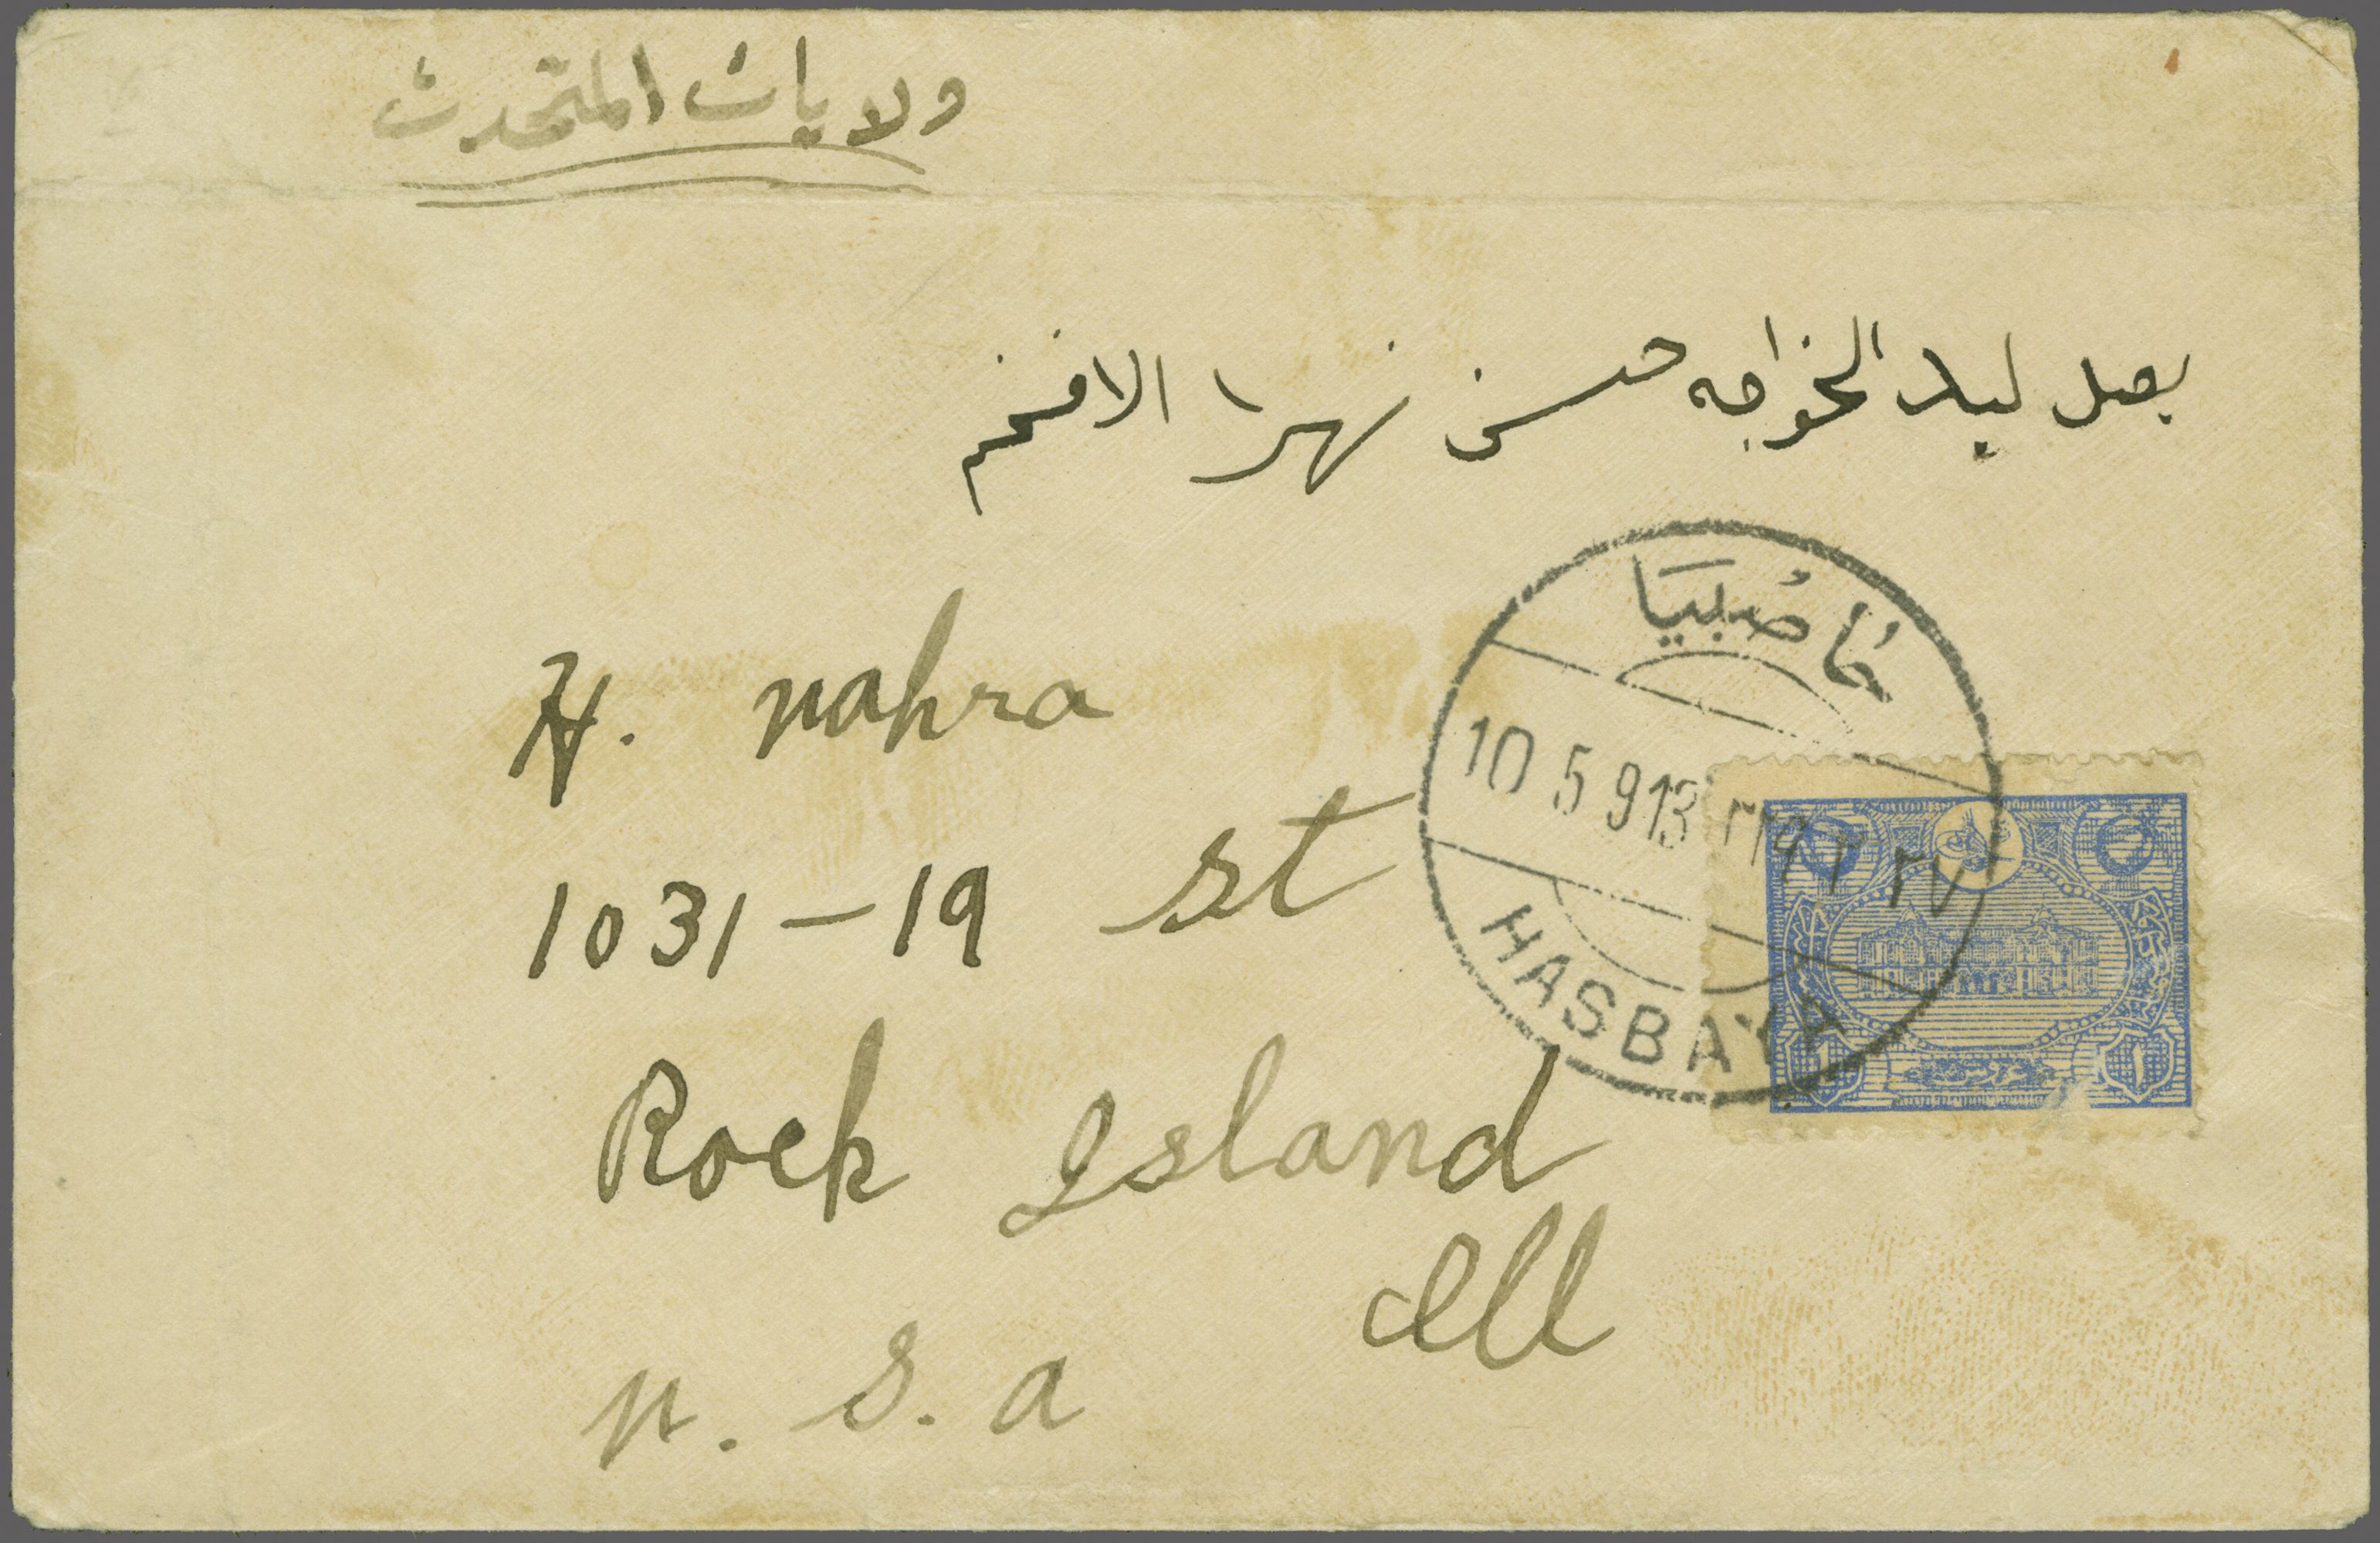 ولايات المتحدت
يصل ليد الخواجه حسن نهرا الافخم
حاصبيا
10 5 913
٣٢٩ ٢ ٢٧
HASBAYA
H. nahra
1031-19 st
Rock Island
Ill
u. s. a